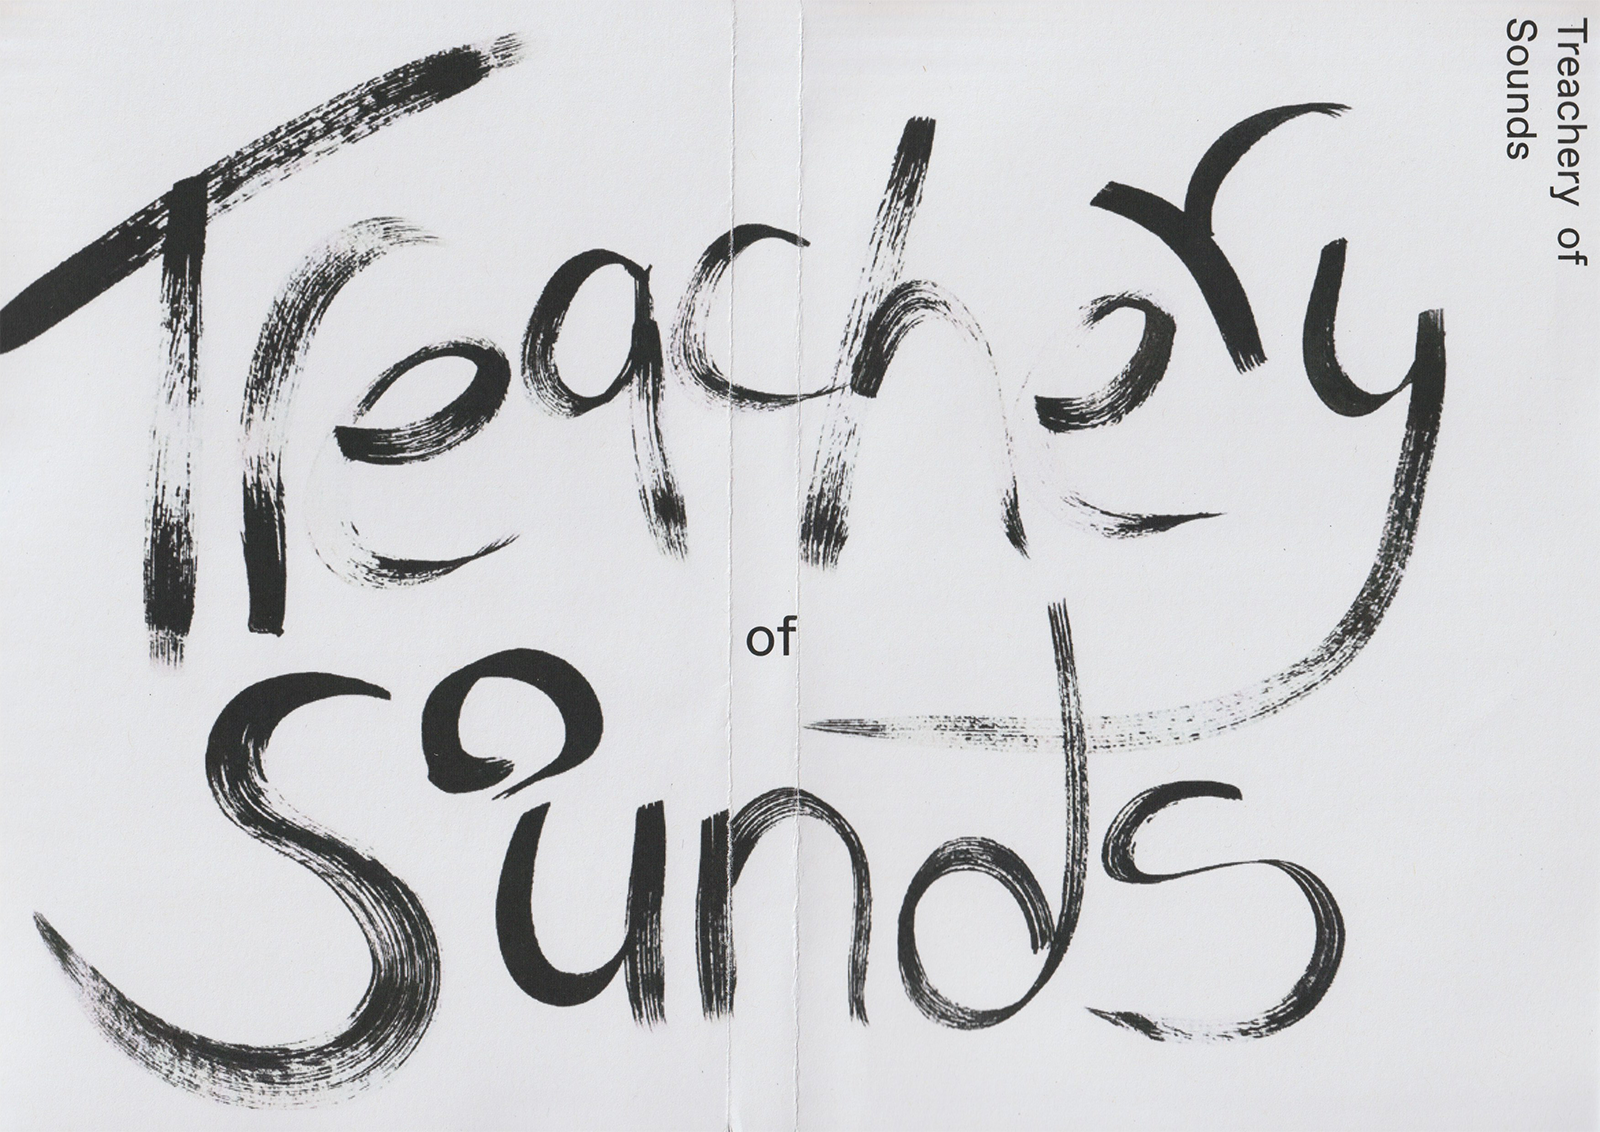 Treachery
of
Sounds
Treachery of
Sounds